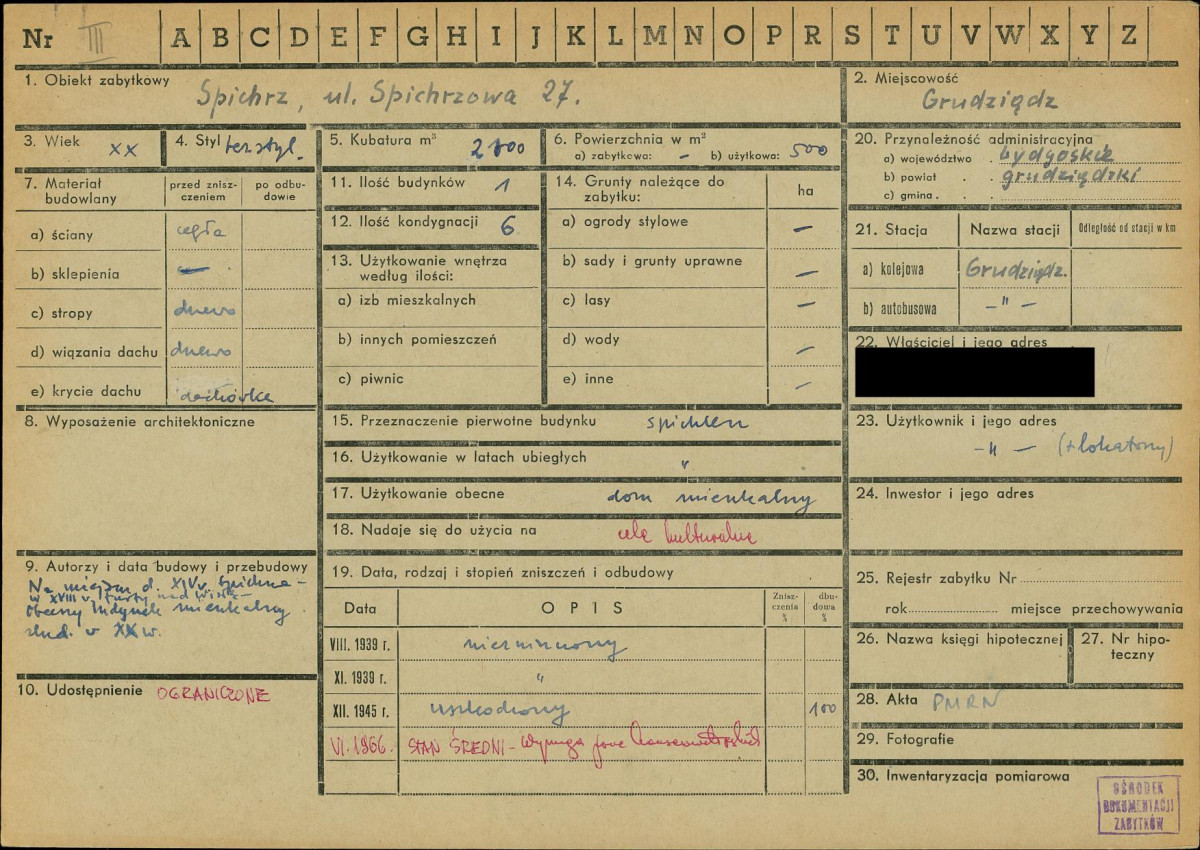 Nr III A B C D E F G H I J K L M N O P R S T U V W X Y Z
1. Obiekt zabytkowy Spichrz, ul. Spichrzowa 27.
2. Miejscowość
Grudziądz
3. Wiek XX
4. Styl bezstyl.
5. Kubatura m³
6. Powierzchnia w m²
a) zabytkowa: — b) użytkowa: 500
7. Materiał budowlany
przed zniszczeniem
po odbudowie
a) ściany cegła
b) sklepienia —
c) stropy drewno
d) wiązania dachu drewno
e) krycie dachu dachówka
8. Wyposażenie architektoniczne
9. Autorzy i data budowy i przebudowy
Na miejscu d. XIV w. spichrza —
w XVIII v. furty nad Wisłą —
obecny budynek mieszkalny
zbud. v XX w.
10. Udostępnienie OGRANICZONE
11. Ilość budynków 1
12. Ilość kondygnacji 6
13. Użytkowanie wnętrza
według ilości:
a) izb mieszkalnych
b) innych pomieszczeń
c) piwnic
14. Grunty należące do
zabytku:
ha
a) ogrody stylowe —
b) sady i grunty uprawne —
c) lasy —
d) wody —
e) inne —
15. Przeznaczenie pierwotne budynku spichlerz
16. Użytkowanie w latach ubiegłych "
17. Użytkowanie obecne dom mieszkalny
18. Nadaje się do użycia na cele kulturalne
19. Data, rodzaj i stopień zniszczeń i odbudowy
Data
OPIS
Zniszczenia %
dbudowa %
VIII. 1939 r. niezniszczony
XI. 1939 r. "
XII. 1945 r. uszkodzony 100
VI. 1966. STAN ŚREDNI - Wymaga prac konserwatorskich
20. Przynależność administracyjna
a) województwo . bydgoskie
b) powiat . . grudziądzki
c) gmina . .
21. Stacja
Nazwa stacji
Odległość od stacji w km
a) kolejowa Grudziądz.
b) autobusowa — " —
22. Właściciel i jego adres
23. Użytkownik i jego adres
— " — (+ lokatorzy)
24. Inwestor i jego adres
25. Rejestr zabytku Nr
rok miejsce przechowywania
26. Nazwa księgi hipotecznej
27. Nr hipoteczny
28. Akta PMRN
29. Fotografie
30. Inwentaryzacja pomiarowa
OŚRODEK
DOKUMENTACJI
ZABYTKÓW